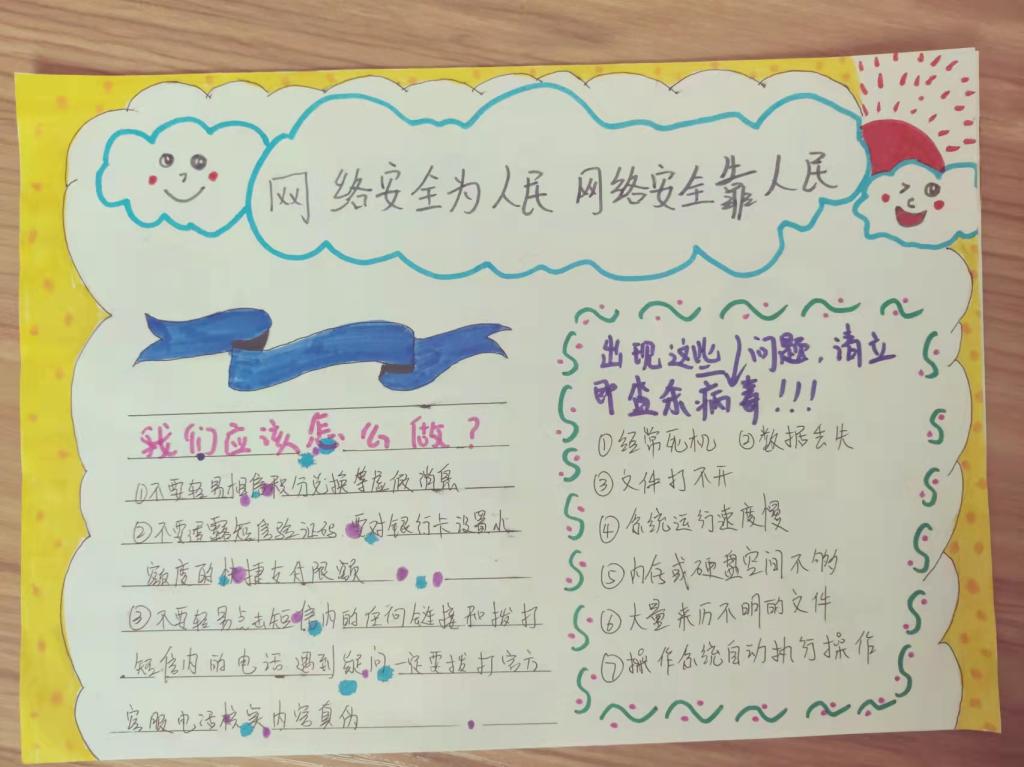 网络安全为人民 网络安全靠人民
我们应该怎么做？
①不要轻易相信积分兑换等虚假消息
②不要透露短信验证码 要对银行卡设置小
额度的快捷支付限额
③不要轻易点击短信内的任何链接和拨打
短信内的电话 遇到疑问一定要拨打官方
客服电话核实内容真伪
出现这些问题，请立
即查杀病毒!!!
①经常死机 ②数据丢失
③文件打不开
④系统运行速度慢
⑤内存或硬盘空间不够
⑥大量来历不明的文件
⑦操作系统自动执行操作